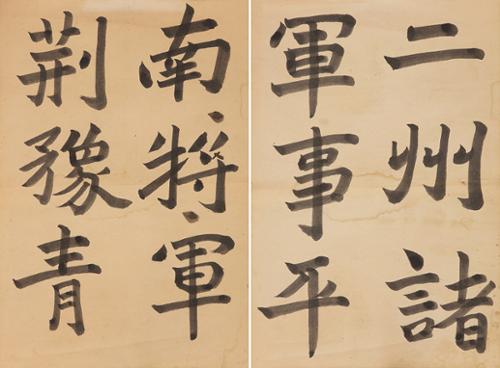 二州諸
軍事平
南將軍
荊豫青